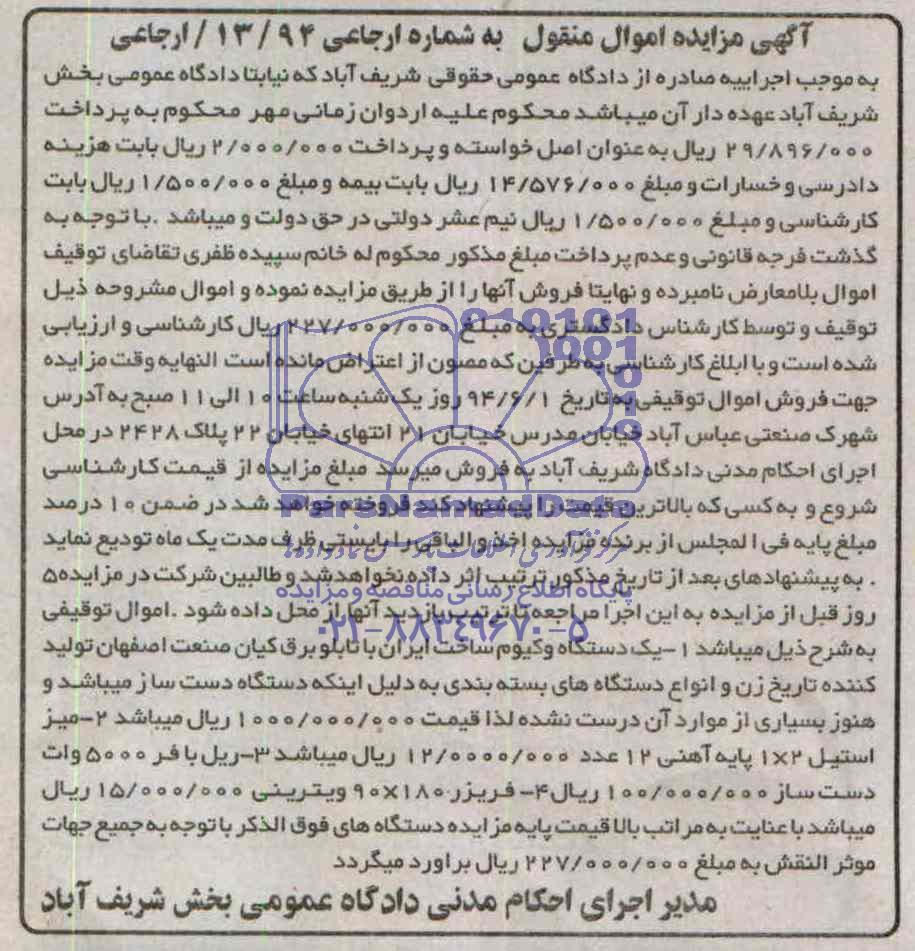 آگهی مزایده اموال منقول به شماره ارجاعی ۹۴ / ۱۳ / ارجاعی
به موجب اجراییه صادره از دادگاه عمومی حقوقی شریف آباد که نیابتا دادگاه عمومی بخش
شریف آباد عهده دار آن میباشد محکوم علیه اردوان زمانی مهر محکوم به پرداخت
۲۹/۸۹۶/۰۰۰ ریال به عنوان اصل خواسته و پرداخت ۲/۰۰۰/۰۰۰ ریال بابت هزینه
دادرسی و خسارات و مبلغ ۱۴/۵۷۶/۰۰۰ ریال بابت بیمه و مبلغ ۱/۵۰۰/۰۰۰ ریال بابت
کارشناسی و مبلغ ۱/۵۰۰/۰۰۰ ریال نیم عشر دولتی در حق دولت و میباشد .با توجه به
گذشت فرجه قانونی و عدم پرداخت مبلغ مذکور محکوم له خانم سپیده ظفری تقاضای توقیف
اموال بلامعارض نامبرده و نهایتا فروش آنها را از طریق مزایده نموده و اموال مشروحه ذیل
توقیف و توسط کارشناس دادگستری به مبلغ ۲۲۷/۰۰۰/۰۰۰ ریال کارشناسی و ارزیابی
شده است و با ابلاغ کارشناسی به طرفین که مصون از اعتراض مانده است النهایه وقت مزایده
جهت فروش اموال توقیفی به تاریخ ۹۴/۶/۱ روز یک شنبه ساعت ۱۰ الی ۱۱ صبح به آدرس
شهرک صنعتی عباس آباد خیابان مدرس خیابان ۲۱ انتهای خیابان ۲۲ پلاک ۲۴۲۸ در محل
اجرای احکام مدنی دادگاه شریف آباد به فروش میرسد مبلغ مزایده از قیمت کارشناسی
شروع و به کسی که بالاترین قیمت را پیشنهاد کند فروخته خواهد شد در ضمن ۱۰ درصد
مبلغ پایه فی المجلس از برنده مزایده اخذ و الباقی را بایستی ظرف مدت یک ماه تودیع نماید
. به پیشنهادهای بعد از تاریخ مذکور ترتیب اثر داده نخواهد شد و طالبین شرکت در مزایده ۵
روز قبل از مزایده به این اجرا مراجعه تا ترتیب بازدید آنها از محل داده شود .اموال توقیفی
به شرح ذیل میباشد ۱-یک دستگاه وکیوم ساخت ایران با تابلو برق کیان صنعت اصفهان تولید
کننده تاریخ زن و انواع دستگاه های بسته بندی به دلیل اینکه دستگاه دست ساز میباشد و
هنوز بسیاری از موارد آن درست نشده لذا قیمت ۱۰۰۰/۰۰۰/۰۰۰ ریال میباشد ۲-میز
استیل ۲×۱ پایه آهنی ۱۲ عدد ۱۲/۰۰۰۰/۰۰۰ ریال میباشد ۳-ریل با فر ۵۰۰۰ وات
دست ساز ۱۰۰/۰۰۰/۰۰۰ ریال ۴- فریزر ۱۸۰×۹۰ ویترینی ۱۵/۰۰۰/۰۰۰ ریال
میباشد با عنایت به مراتب بالا قیمت پایه مزایده دستگاه های فوق الذکر با توجه به جمیع جهات
موثر النقش به مبلغ ۲۲۷/۰۰۰/۰۰۰ ریال براورد میگردد
مدیر اجرای احکام مدنی دادگاه عمومی بخش شریف آباد
ParsNamadData
پایگاه اطلاع رسانی مناقصه و مزایده
۰۲۱-۸۸۳۴۹۶۷۰-۵